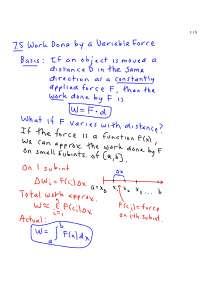 7.5 Work Done by a Variable Force
Basis: If an object is moved a
distance D in the same
direction as a constantly
applied force F, then the
work done by F is
W = F · d
What if F varies with distance?
If the force is a function F(x),
we can approx. the work done by F
on small subints. of [a,b].
On 1 subint
ΔWᵢ = F(cᵢ)Δx
Δx
a=x₀ x₁ x₂ x₃ ... b
Total work approx.
W ≈ Σ F(cᵢ)Δx
i=1
F(cᵢ) = force
on ith subint
Actual:
W = ∫ₐᵇ F(x)dx